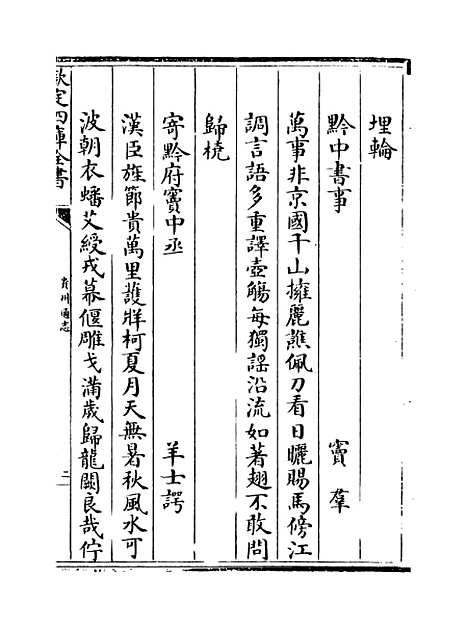 埋輪
黔中書事　竇羣
萬事非京國千山擁麗譙佩刀看日曬賜馬傍江
調言語多重譯壺觴每獨謡沿流如著翅不敢問
歸橈
寄黔府竇中丞　羊士諤
漢臣旌節貴萬里護牂柯夏月天無暑秋風水可
波朝衣蟠艾綬戎幕偃雕戈滿歲歸龍闕良哉佇
欽定四庫全書
貴州通志
二